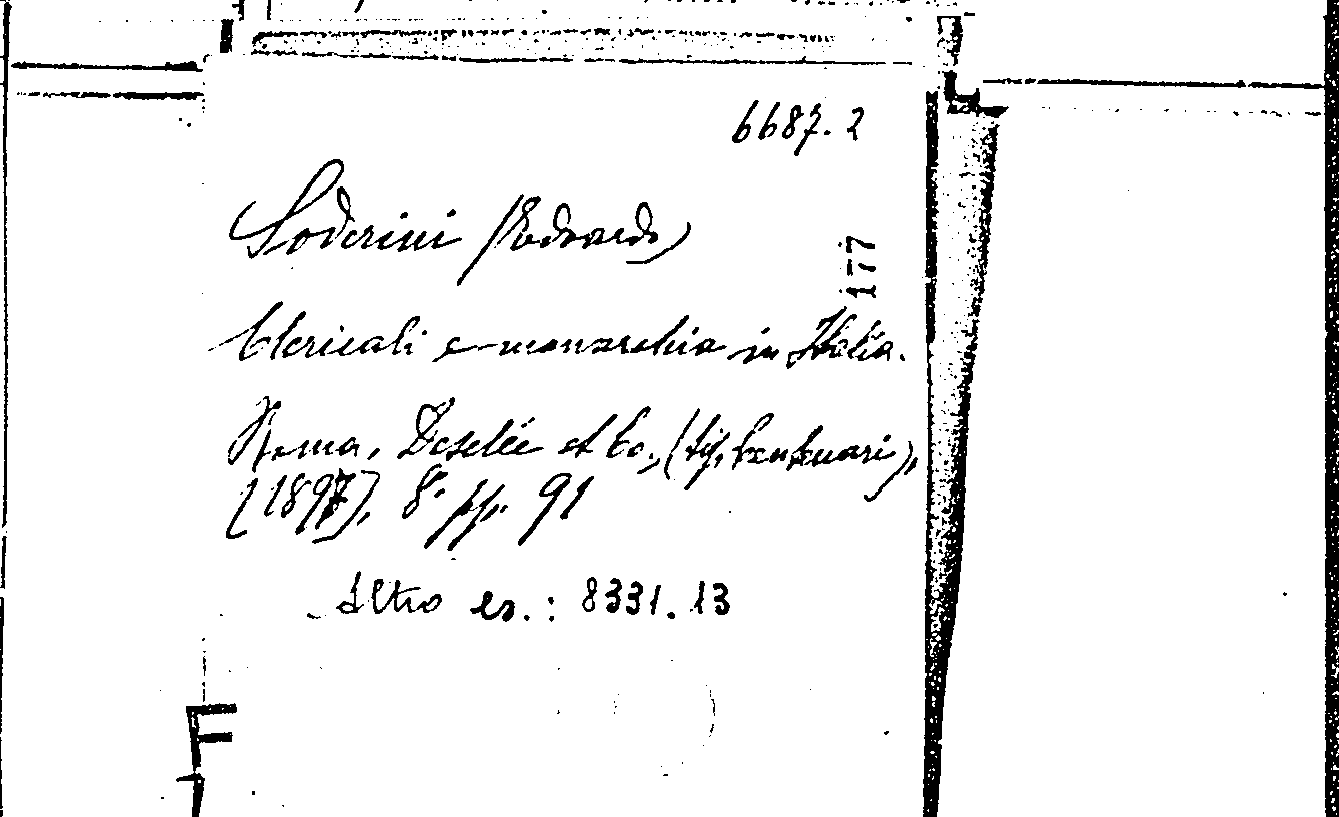 6687.2
Soderini (Edoardo)
177
Clericali e monarchia in Italia.
Roma, Desclée et Co., (tip. Centenari),
[1897], 8° pp. 91
Altro es.: 8331.13